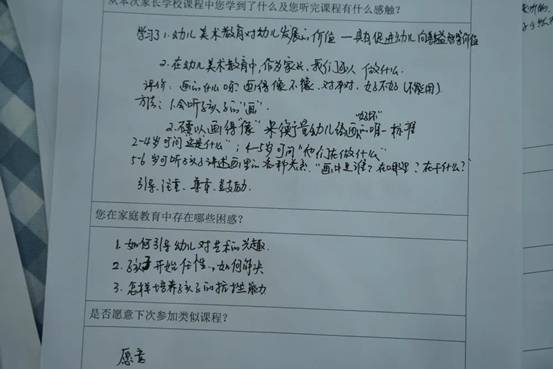 从本次家长学校课程中您学到了什么及您听完课程有什么感触?
学习了1.幼儿美术教育对幼儿发展的价值—具有促进幼儿向善益智等价值
2.在幼儿美术教育中,作为家长,我们应从 做什么.
评价:画的什么呀?画得像不像、对不对、好不好(不能用)
方法:1.会听孩子的"画".
2.不要以画得"像" 来衡量幼儿绘画"好坏"的唯一标准
2-4岁可问"这是什么";4-5岁可问"他们在做什么"
5-6岁可听孩子讲述画里的各种关系."画里是谁?在哪里?在干什么?"
引导、注重、尊重、鼓励.
您在家庭教育中存在哪些困惑?
1.如何引导幼儿对艺术的兴趣.
2.孩子开始任性,如何解决
3.怎样培养孩子的抗挫能力
是否愿意下次参加类似课程?
愿意